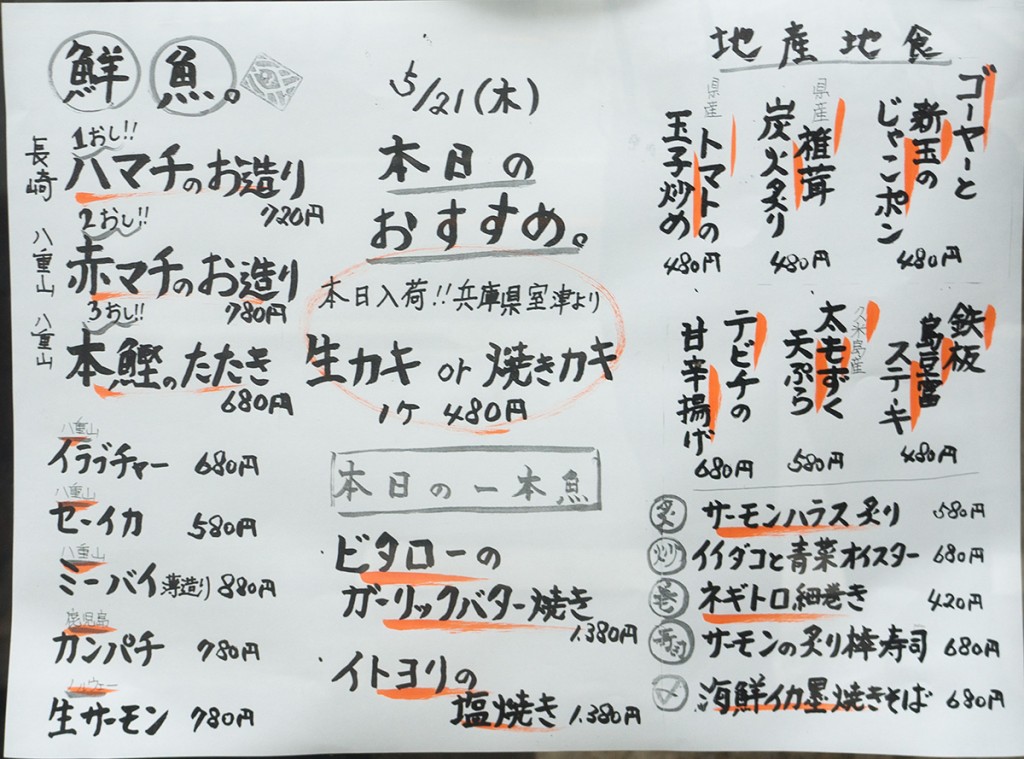 鮮魚。
長崎
1おし!!
ハマチのお造り
720円
八重山
2おし!!
赤マチのお造り
780円
八重山
3おし!!
本鰹のたたき
680円
八重山
イラブチャー 680円
八重山
セーイカ 580円
八重山
ミーバイ薄造り 880円
鹿児島
カンパチ 780円
ノルウェー
生サーモン 780円
5/21(木)
本日の
おすすめ。
本日入荷!!兵庫県室津より
生カキ or 焼きカキ
1ケ 480円
本日の一本魚
ビタローの
ガーリックバター焼き
1.380円
イトヨリの
塩焼き 1.380円
地産地食
ゴーヤーと
新玉の
じゃこポン
480円
県産
椎茸
炭火炙り
480円
県産
トマトの
玉子炒め
480円
鉄板
島豆富
ステーキ
480円
久米島産
太もずく
天ぷら
580円
テビチの
甘辛揚げ
680円
炙 サーモンハラス炙り 580円
炒 イイダコと青菜オイスター 680円
巻 ネギトロ細巻き 420円
寿司 サーモンの炙り棒寿司 680円
〆 海鮮イカ墨焼きそば 680円